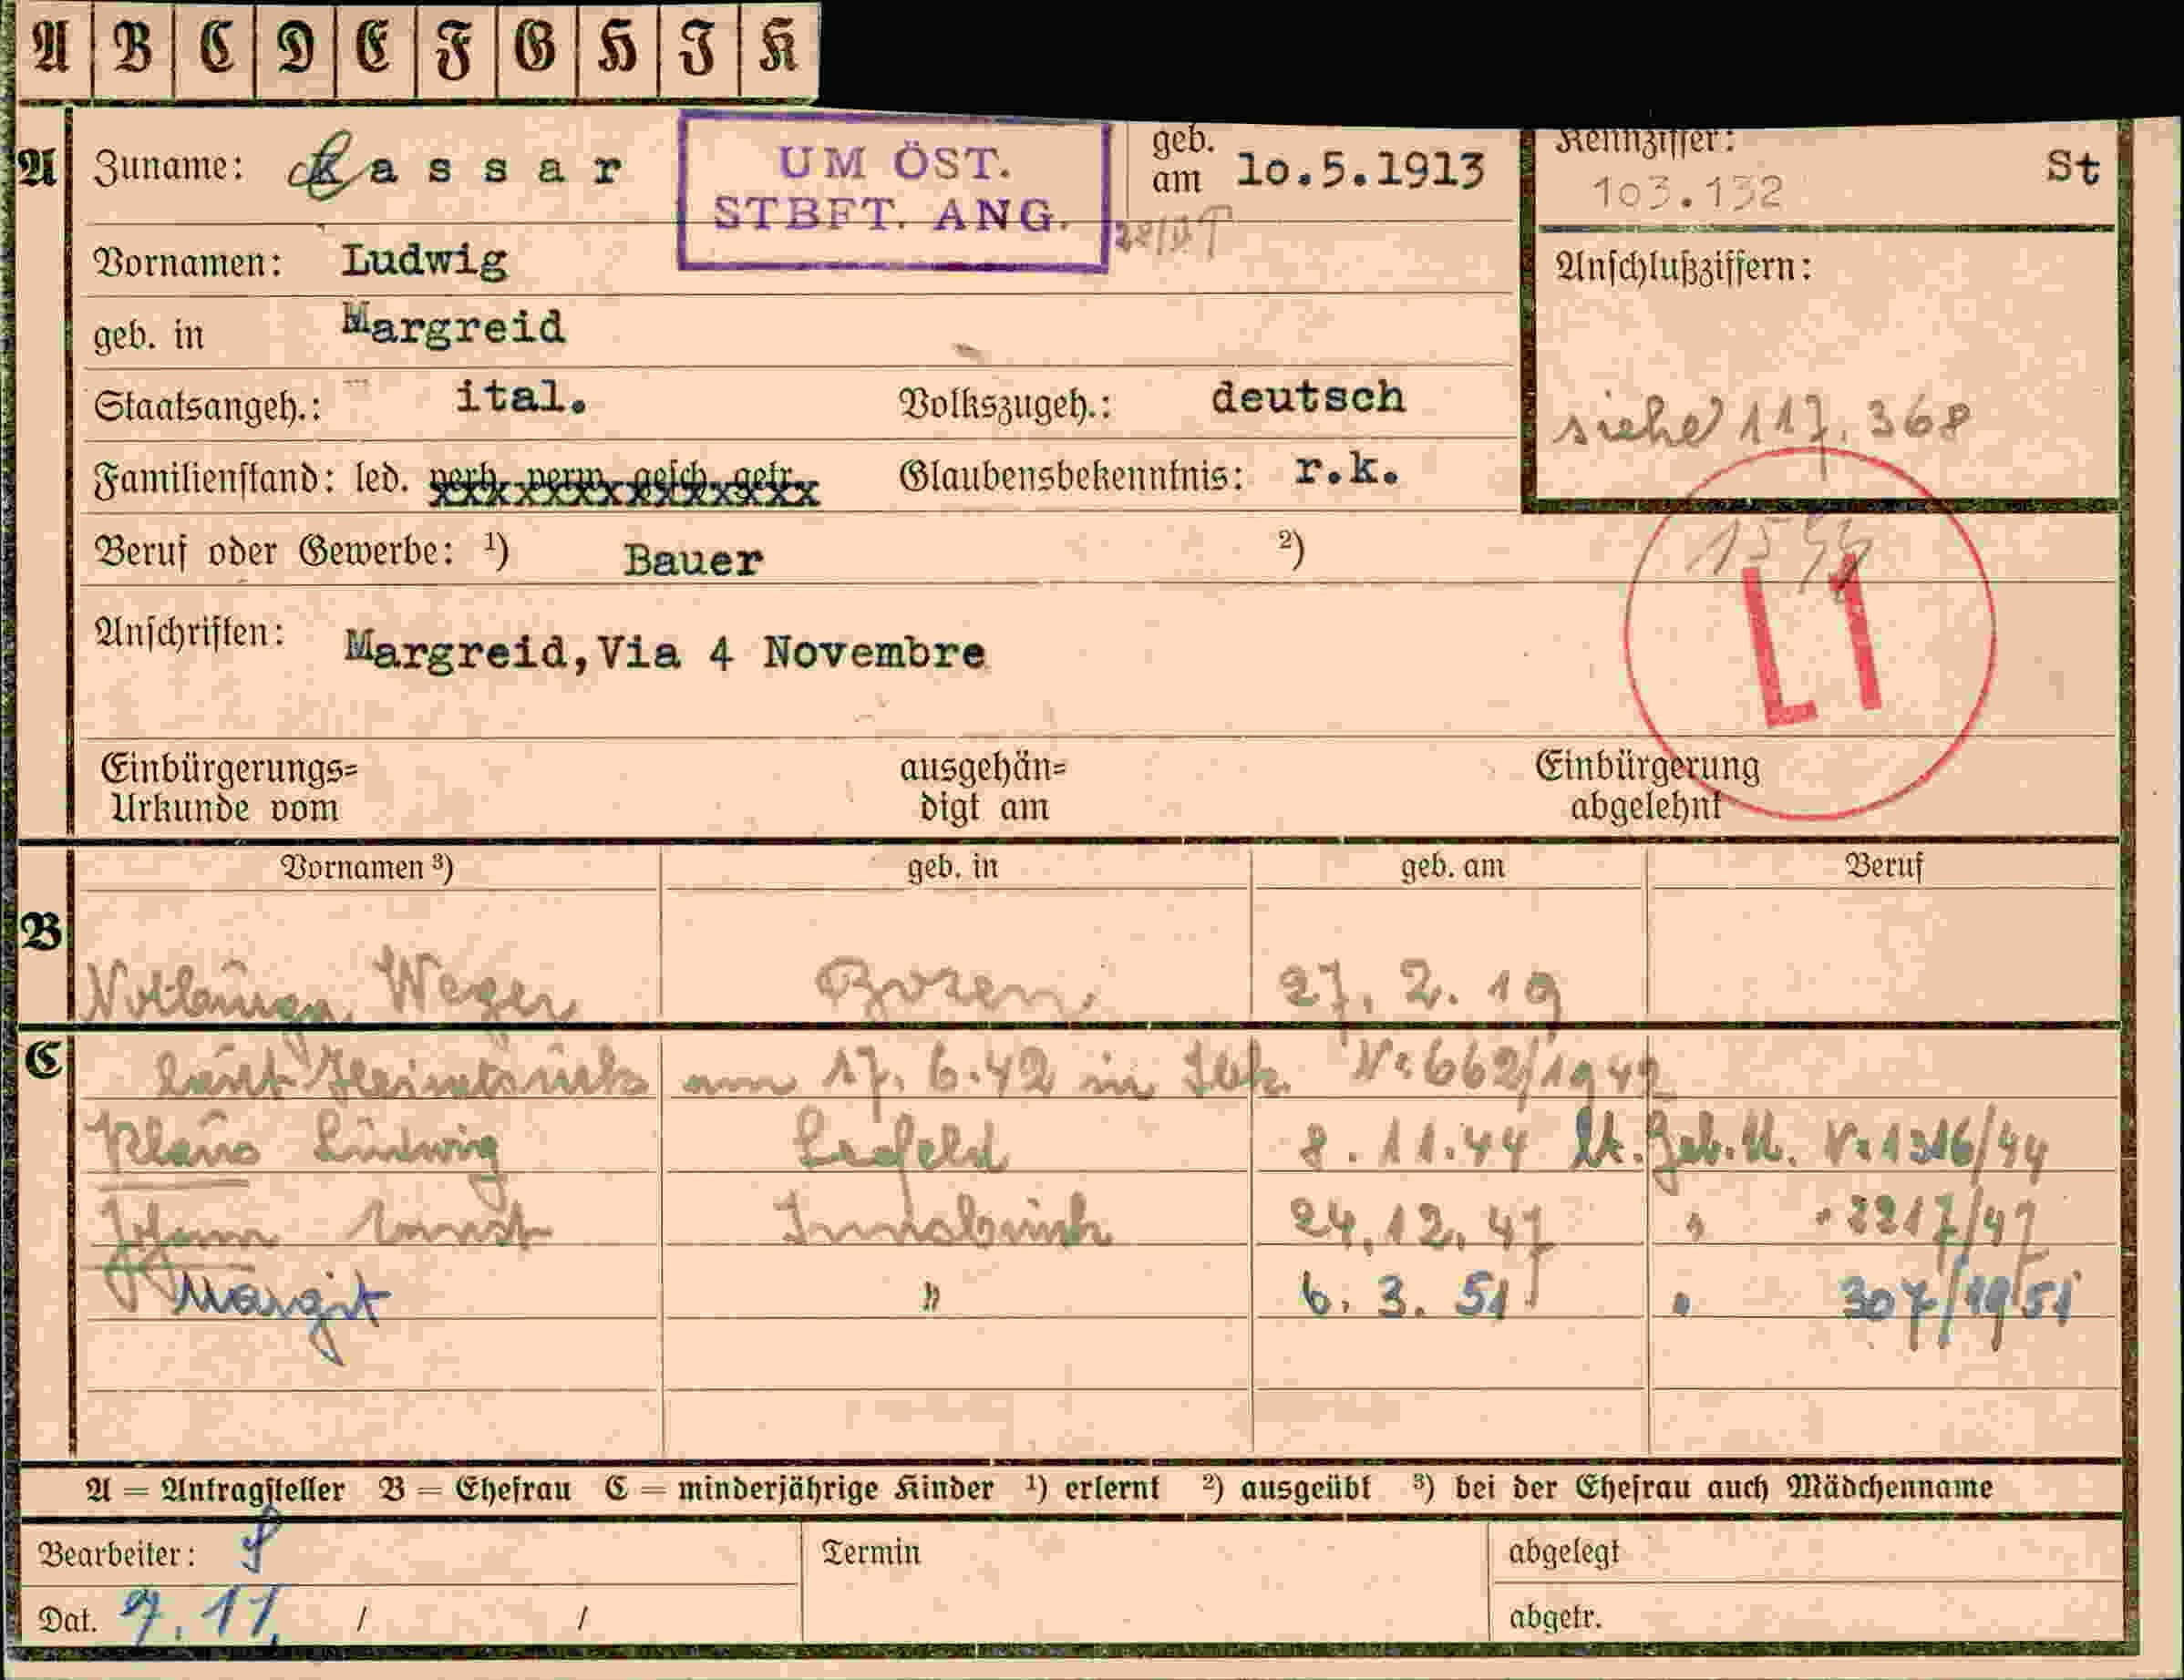 A B C D E F G H J K
A Zuname: Kassar
UM ÖST.
STBFT. ANG.
geb. am 10.5.1913
Kennziffer:
103.132 St
Vornamen: Ludwig
geb. in Margreid
Anschlußziffern:
siehe 117.368
Staatsangeh.: ital. Volkszugeh.: deutsch
Familienstand: led. verh. verw. gesch. getr. Glaubensbekenntnis: r.k.
Beruf oder Gewerbe: ¹) Bauer ²)
L1
Anschriften: Margreid, Via 4 Novembre
Einbürgerungs= Urkunde vom ausgehän= digt am Einbürgerung abgelehnt
Vornamen ³) geb. in geb. am Beruf
B
Notburga Weger Bozen 27. 2. 19
C
laut am 17. 6. 42 in Ibk. Nr 662/1942
Klaus Ludwig 8. 11. 44 lt. Geb. U. Nr 1316/44
Johann Ernst Innsbruck 24. 12. 47 " " 2217/47
Margit " 6. 3. 51 " 307/1951
A = Antragsteller B = Ehefrau C = minderjährige Kinder ¹) erlernt ²) ausgeübt ³) bei der Ehefrau auch Mädchenname
Bearbeiter: Termin abgelegt
Dat. 7. 11. / / abgetr.